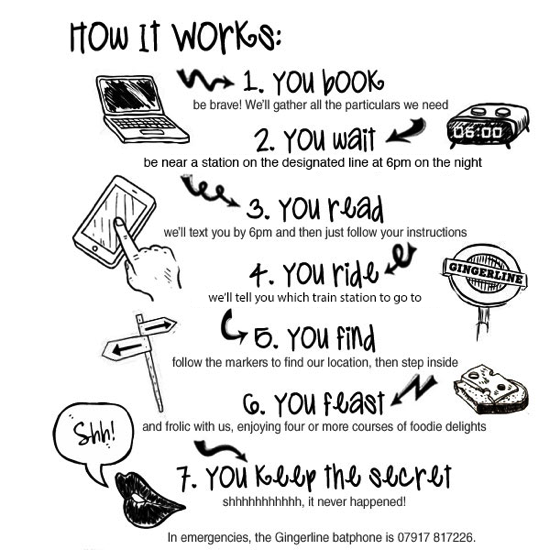 How it works:
1. You book
be brave! We'll gather all the particulars we need
2. You wait
06:00
be near a station on the designated line at 6pm on the night
3. You read
we'll text you by 6pm and then just follow your instructions
4. You ride
GINGERLINE
we'll tell you which train station to go to
5. You find
follow the markers to find our location, then step inside
6. You feast
and frolic with us, enjoying four or more courses of foodie delights
Shh!
7. You keep the secret
shhhhhhhhhhh, it never happened!
In emergencies, the Gingerline batphone is 07917 817226.